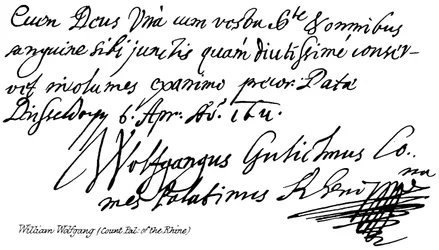 Eum Deus Vra̅ cum vestra Ste & omnibus
sanguine sibi junctis quam diutissime conser-
vet incolumes ex animo precor. Data
Dusseldorp 6. Apr. Ao.
Wolfgangus Gulielmus Co..
mes Palatinus Rheni
William Wolfgang (Count Pal: of the Rhine)